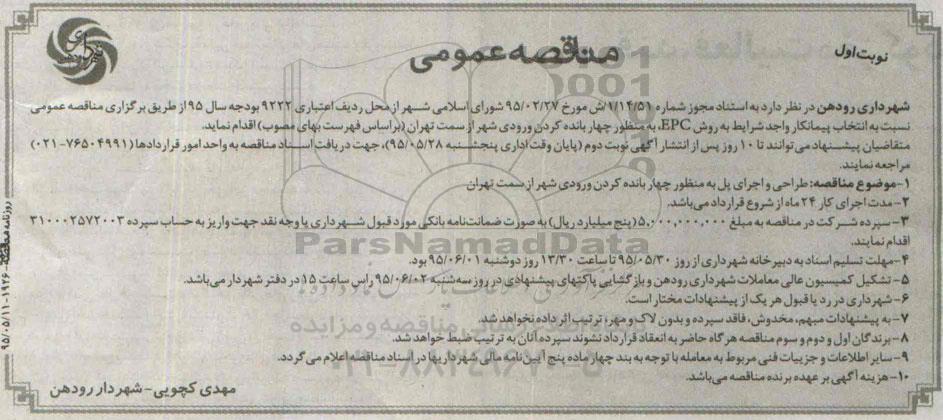 نوبت اول
مناقصه عمومی
شهرداری رودهن
شهرداری رودهن در نظر دارد به استناد مجوز شماره ۱/۱۴/۵۱/ش مورخ ۹۵/۰۲/۲۷ شورای اسلامی شهر از محل ردیف اعتباری ۹۲۲۲ بودجه سال ۹۵ از طریق برگزاری مناقصه عمومی
نسبت به انتخاب پیمانکار واجد شرایط به روش EPC، به منظور چهار بانده کردن ورودی شهر از سمت تهران (براساس فهرست بهای مصوب) اقدام نماید.
متقاضیان پیشنهاد می توانند تا ۱۰ روز پس از انتشار آگهی نوبت دوم (پایان وقت اداری پنجشنبه ۹۵/۰۵/۲۸)، جهت دریافت اسناد مناقصه به واحد امور قراردادها (۷۶۵۰۴۹۹۱-۰۲۱)
مراجعه نمایند.
۱-موضوع مناقصه: طراحی و اجرای پل به منظور چهار بانده کردن ورودی شهر از سمت تهران
۲-مدت اجرای کار ۲۴ ماه از شروع قرارداد می باشد.
۳-سپرده شرکت در مناقصه به مبلغ ۵,۰۰۰,۰۰۰,۰۰۰ (پنج میلیارد ریال) به صورت ضمانت نامه بانکی مورد قبول شهرداری یا وجه نقد جهت واریز به حساب سپرده ۳۱۰۰۰۲۵۷۲۰۰۳
اقدام نمایند.
۴-مهلت تسلیم اسناد به دبیرخانه شهرداری از روز ۹۵/۰۵/۳۰ تا ساعت ۱۳/۳۰ روز دوشنبه ۹۵/۰۶/۰۱ بود.
۵-تشکیل کمیسیون عالی معاملات شهرداری رودهن و بازگشایی پاکتهای پیشنهادی در روز سه شنبه ۹۵/۰۶/۰۲ راس ساعت ۱۵ در دفتر شهردار می باشد.
۶-شهرداری در رد یا قبول هر یک از پیشنهادات مختار است.
۷-به پیشنهادات مبهم، مخدوش، فاقد سپرده و بدون لاک و مهر، ترتیب اثر داده نخواهد شد.
۸-برندگان اول و دوم و سوم مناقصه هرگاه حاضر به انعقاد قرارداد نشوند سپرده آنان به ترتیب ضبط خواهد شد.
۹-سایر اطلاعات و جزییات فنی مربوط به معامله با توجه به بند چهار ماده پنج آیین نامه مالی شهرداریها در اسناد مناقصه اعلام می گردد.
۱۰-هزینه آگهی بر عهده برنده مناقصه می باشد.
مهدی کچویی-شهردار رودهن
ParsNamadData
پایگاه اطلاع رسانی مناقصه و مزایده
۰۲۱-۸۸۳۴۹۶۷۰-۵
روزنامه ۱۹۲۶-۹۵/۰۵/۱۱